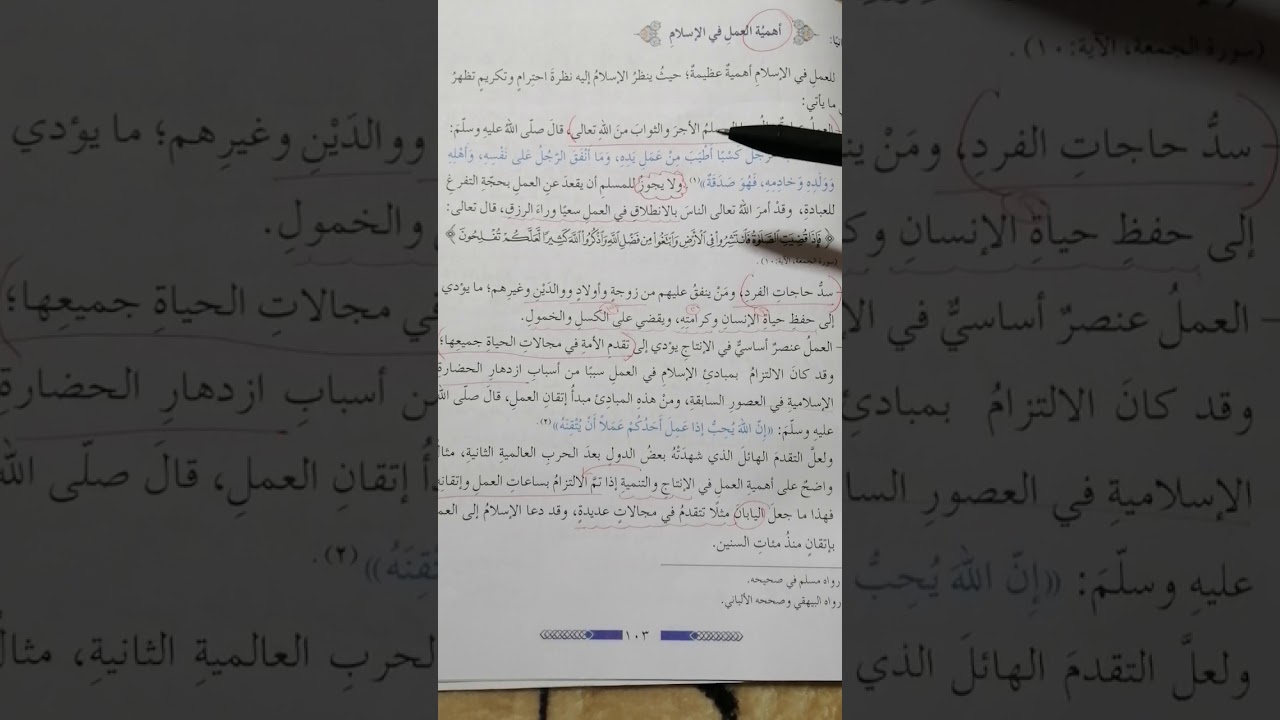 أهميّة العملِ في الإسلامِ
للعملِ في الإسلامِ أهميةٌ عظيمةٌ؛ حيثُ ينظرُ الإسلامُ إليه نظرةَ احترامٍ وتكريمٍ تظهرُ
ما يأتي:
المسلمُ الأجرَ والثوابَ منَ اللهِ تعالى، قالَ صلّى اللهُ عليهِ وسلّمَ:
كَسْبًا أَطْيَبَ مِنْ عَمَلِ يَدِهِ، وَمَا أَنْفَقَ الرَّجُلُ عَلى نَفْسِهِ، وَأَهْلِهِ
وَوَلَدِهِ وَخادِمِهِ، فَهُوَ صَدَقَةٌ»(١) ولا يجوزُ للمسلمِ أن يقعدَ عنِ العملِ بحجّةِ التفرغِ
للعبادةِ، وقدْ أمرَ اللهُ تعالى الناسَ بالانطلاقِ في العملِ سعيًا وراءَ الرزقِ، قال تعالى:
﴿ فَإِذَا قُضِيَتِ الصَّلَوٰةُ فَانتَشِرُوا۟ فِي الْأَرْضِ وَابْتَغُوا۟ مِن فَضْلِ اللَّهِ وَاذْكُرُوا۟ اللَّهَ كَثِيرًا لَّعَلَّكُمْ تُفْلِحُونَ ﴾
(سورة الجمعة، الآية: ١٠).
- سدُّ حاجاتِ الفردِ، ومَنْ ينفقُ عليهم من زوجةٍ وأولادٍ ووالدَيْنِ وغيرِهم؛ ما يؤدي
إلى حفظِ حياةِ الإنسانِ وكرامتِهِ، ويقضي على الكسلِ والخمولِ.
- العملُ عنصرٌ أساسيٌّ في الإنتاجِ يؤدي إلى تقدمِ الأمةِ في مجالاتِ الحياةِ جميعِها؛
وقد كانَ الالتزامُ بمبادئِ الإسلامِ في العملِ سببًا من أسبابِ ازدهارِ الحضارةِ
الإسلاميةِ في العصورِ السابقةِ، ومنْ هذهِ المبادئ مبدأُ إتقانِ العملِ، قالَ صلّى اللهُ
عليهِ وسلّمَ: «إنّ اللهَ يُحِبُّ إذا عَمِلَ أَحَدُكُمْ عَمَلاً أَنْ يُتْقِنَهُ»(٢).
ولعلَّ التقدمَ الهائلَ الذي شهدَتْهُ بعضُ الدولِ بعدَ الحربِ العالميةِ الثانيةِ، مثالٌ
واضحٌ على أهميةِ العملِ في الإنتاجِ والتنميةِ إذا تمَّ الالتزامُ بساعاتِ العملِ وإتقانِهِ
فهذا ما جعلَ اليابانَ مثلًا تتقدمُ في مجالاتٍ عديدةٍ، وقد دعا الإسلامُ إلى العملِ
بإتقانٍ منذُ مئاتِ السنين.
رواه مسلم في صحيحه.
رواه البيهقي وصححه الألباني.
١٠٣